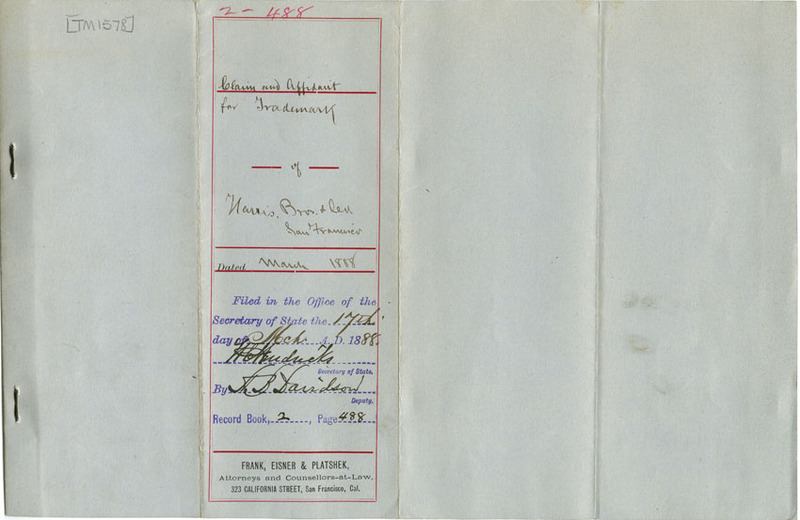 [TM1578]
2 - 488
Claim and Affidavit
for Trademark
of
Harris, Bros. & Co
San Francisco
Dated March 1888
Filed in the Office of the
Secretary of State the 17th
day of Mch. A.D. 1888.
W C Hendricks
Secretary of State.
By A B Davidson
Deputy.
Record Book, 2, Page 488
FRANK, EISNER & PLATSHEK,
Attorneys and Counsellors-at-Law,
323 CALIFORNIA STREET, San Francisco, Cal.